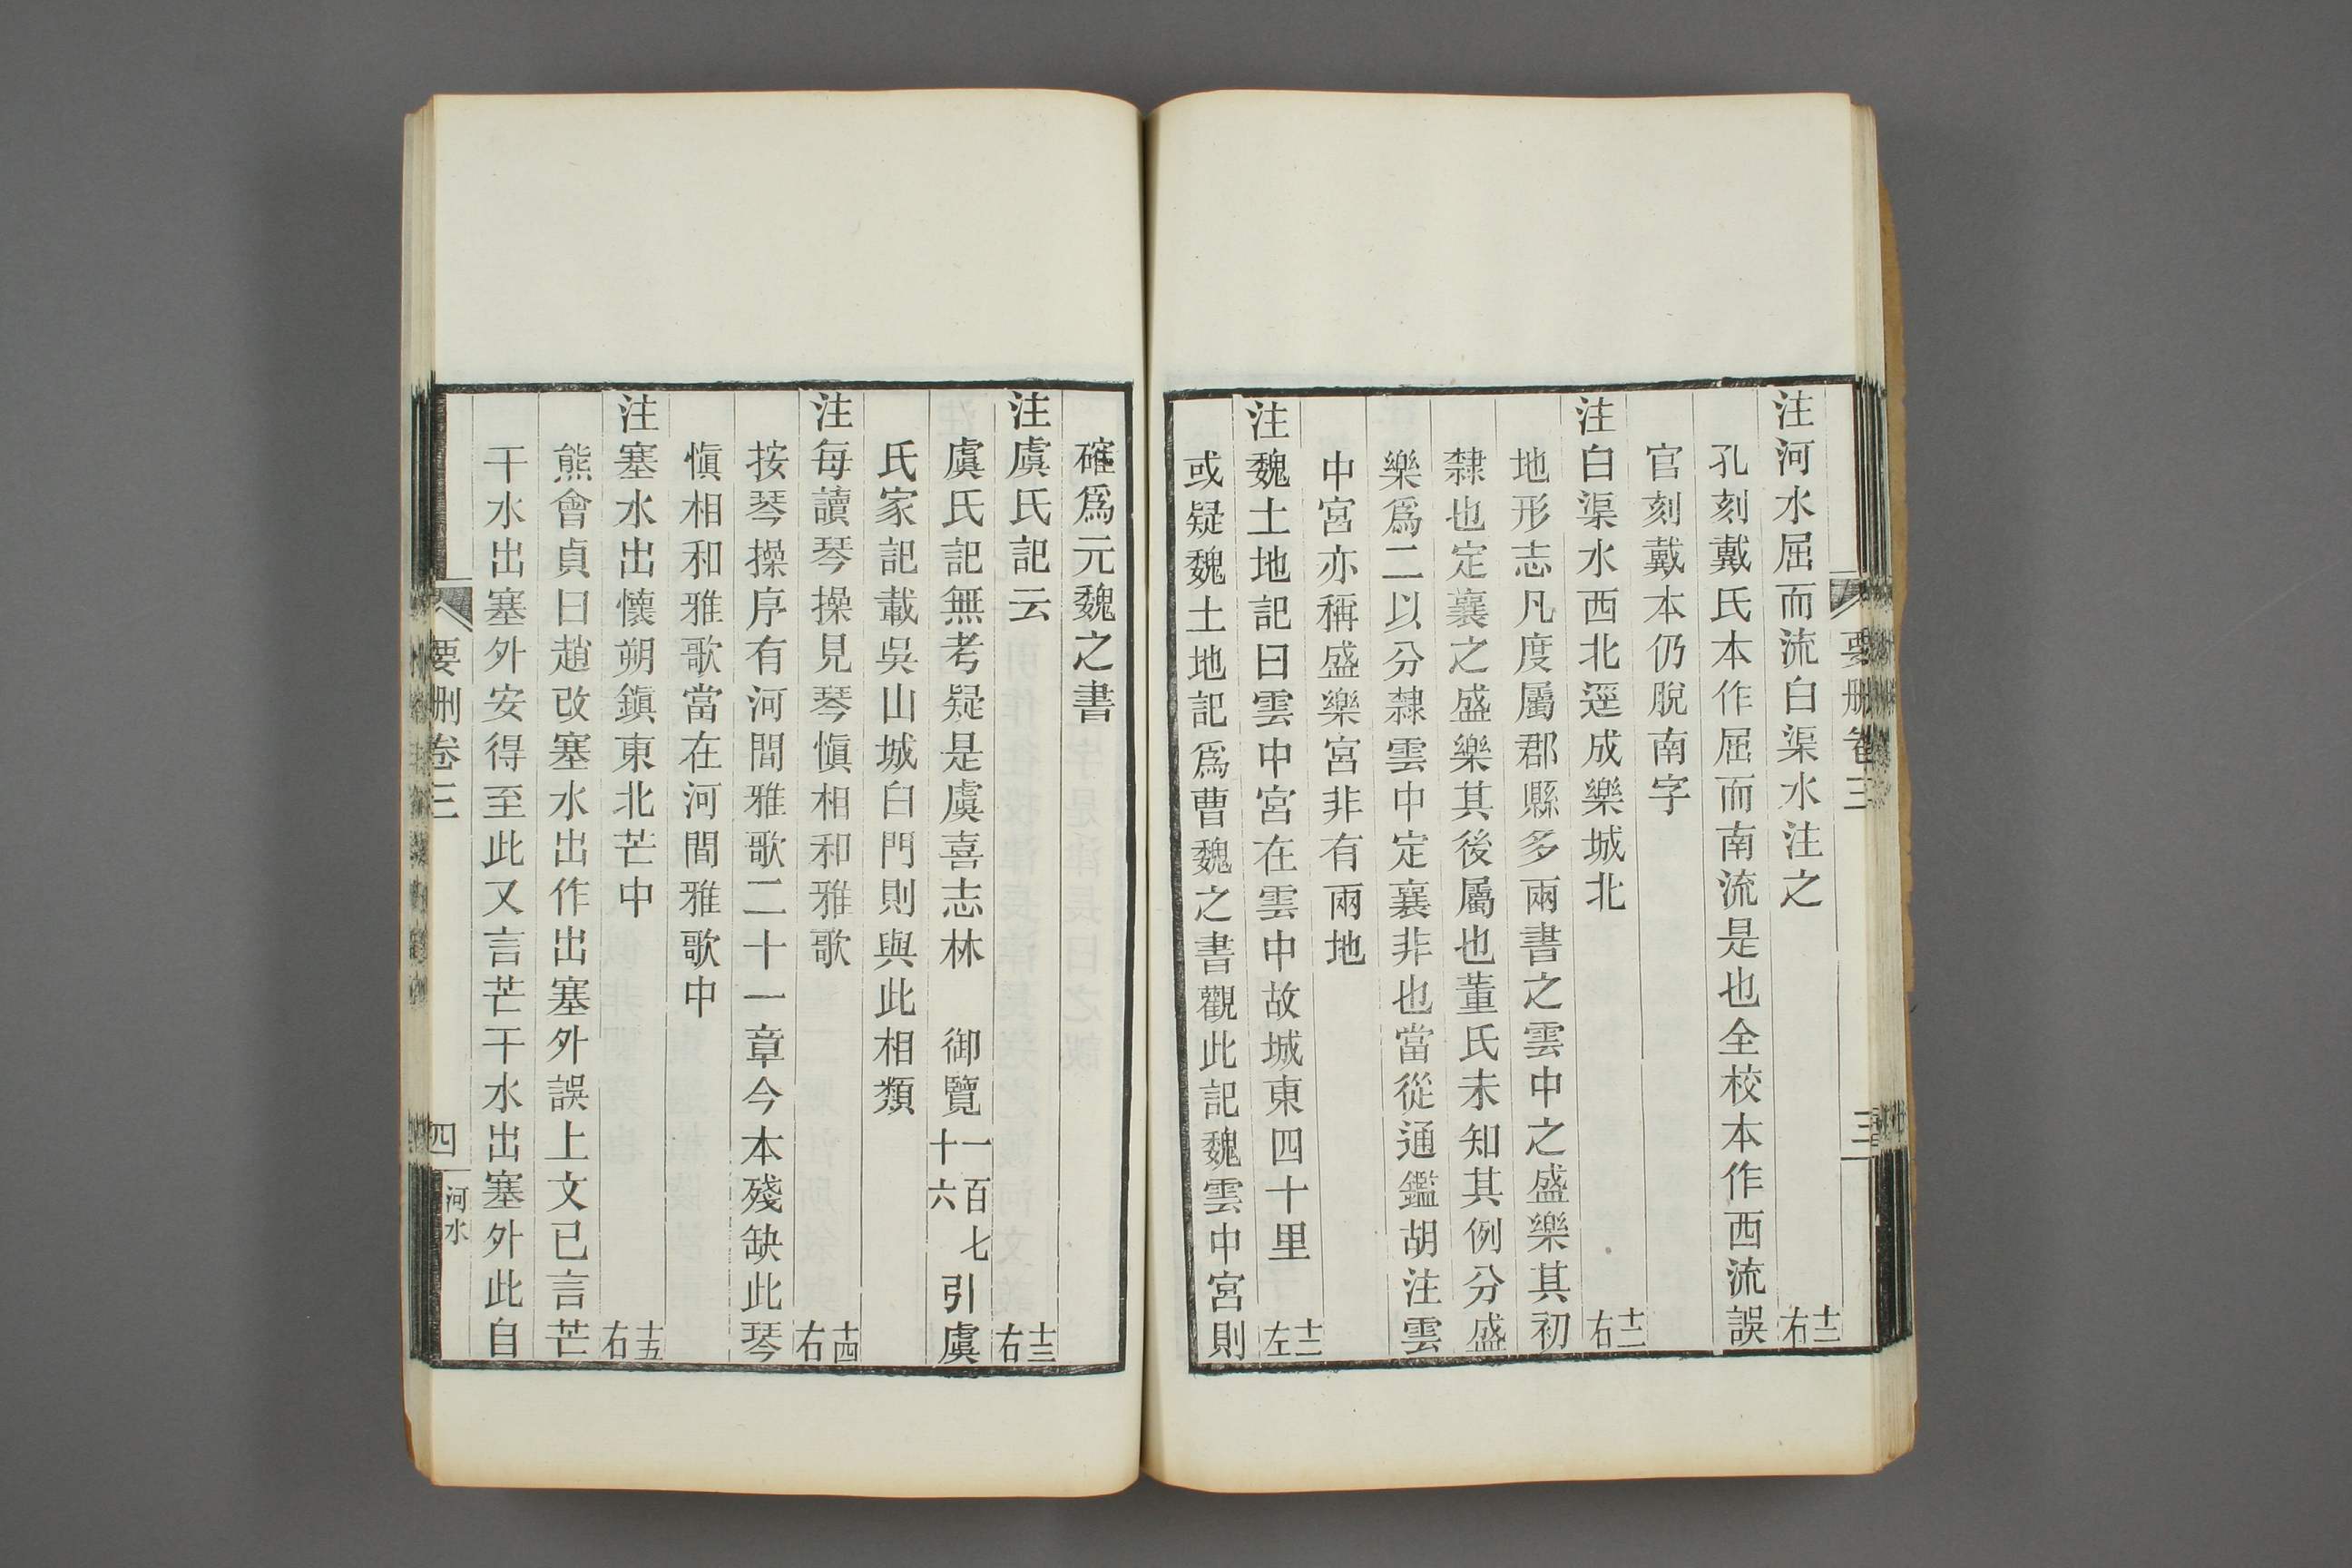 要刪卷三
三
注河水屈而流白渠水注之 十二右
孔刻戴氏本作屈而南流是也全校本作西流誤
官刻戴本仍脫南字
注白渠水西北逕成樂城北 十二右
地形志凡度屬郡縣多兩書之雲中之盛樂其初
隸也定襄之盛樂其後屬也董氏未知其例分盛
樂爲二以分隸雲中定襄非也當從通鑑胡注雲
中宮亦稱盛樂宮非有兩地
注魏土地記曰雲中宮在雲中故城東四十里 十二左
或疑魏土地記爲曹魏之書觀此記魏雲中宮則
確爲元魏之書
注虞氏記云 十三右
虞氏記無考疑是虞喜志林 御覽一百七十六引虞
氏家記載吳山城白門則與此相類
注每讀琴操見琴愼相和雅歌 十四右
按琴操序有河間雅歌二十一章今本殘缺此琴
愼相和雅歌當在河間雅歌中
注塞水出懷朔鎮東北芒中 十五右
熊會貞曰趙改塞水出作出塞外誤上文已言芒
干水出塞外安得至此又言芒干水出塞外此自
要刪卷三
四
河水